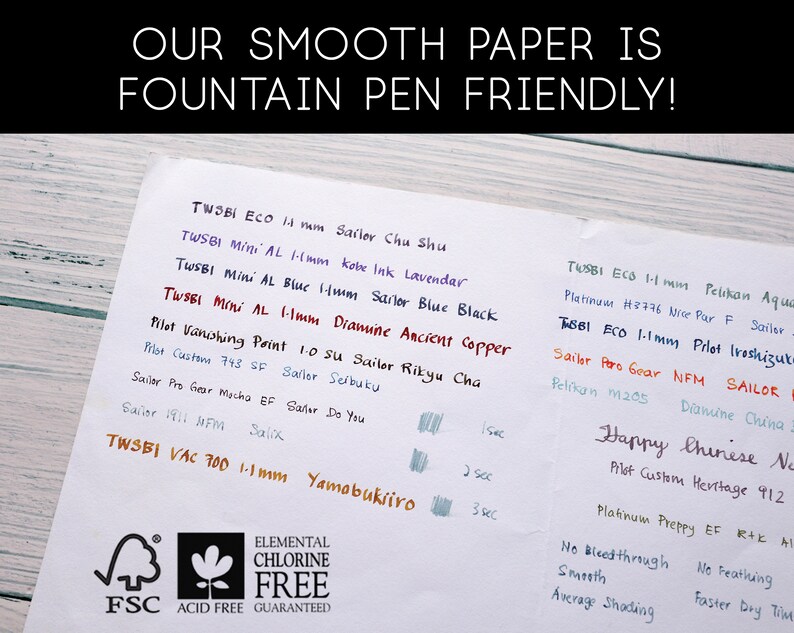 OUR SMOOTH PAPER IS
FOUNTAIN PEN FRIENDLY!
TWSBI ECO 1.1 mm Sailor Chu Shu
TWSBI Mini AL 1.1mm Kobe Ink Lavendar
TWSBI Mini AL Blue 1.1mm Sailor Blue Black
TWSBI Mini AL 1.1mm Diamine Ancient Copper
Pilot Vanishing Point 1.0 SU Sailor Rikyu Cha
Pilot Custom 743 SF Sailor Seibuku
Sailor Pro Gear Mocha EF Sailor Do You
Sailor 1911 NFM Salix
TWSBI VAC 700 1.1mm Yamabukiiro
1sec
2 sec
3 sec
TWSBI ECO 1.1 mm Pelikan Aqua
Platinum #3776 Nice Par F Sailor
TWSBI ECO 1.1mm Pilot Iroshizuk
Sailor Pro Gear NFM SAILOR
Pelikan M205 Diamine China
Happy Chinese Ne
Pilot Custom Heritage 912
Platinum Preppy EF R+K Al
No Bleedthrough No Feathing
Smooth Faster Dry Tim
Average Shading
FSC
ACID FREE
ELEMENTAL
CHLORINE
FREE
GUARANTEED